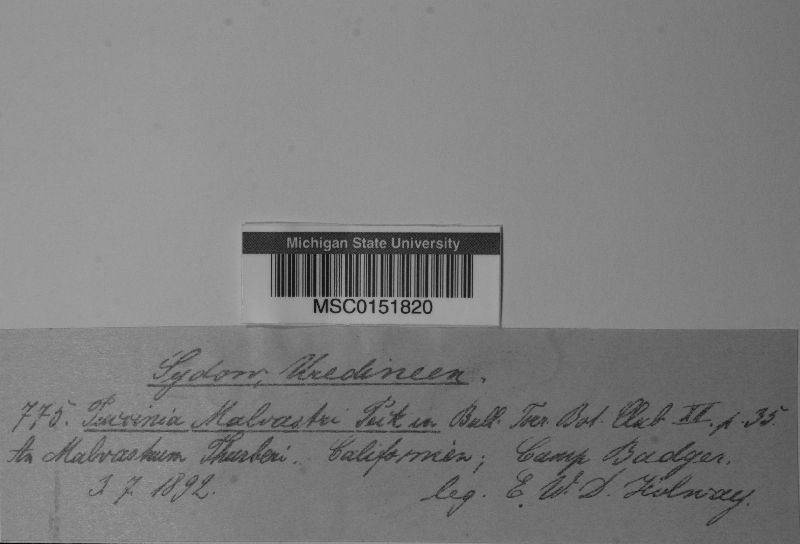 Michigan State University
MSC0151820
Sydow, Uredineen.
775. Puccinia Malvastri Peck in Bull. Torr. Bot. Club XII. p. 35
An Malvastrum Thurberi. Californien; Camp Badger.
3. 7. 1892. leg. E. W. D. Holway.